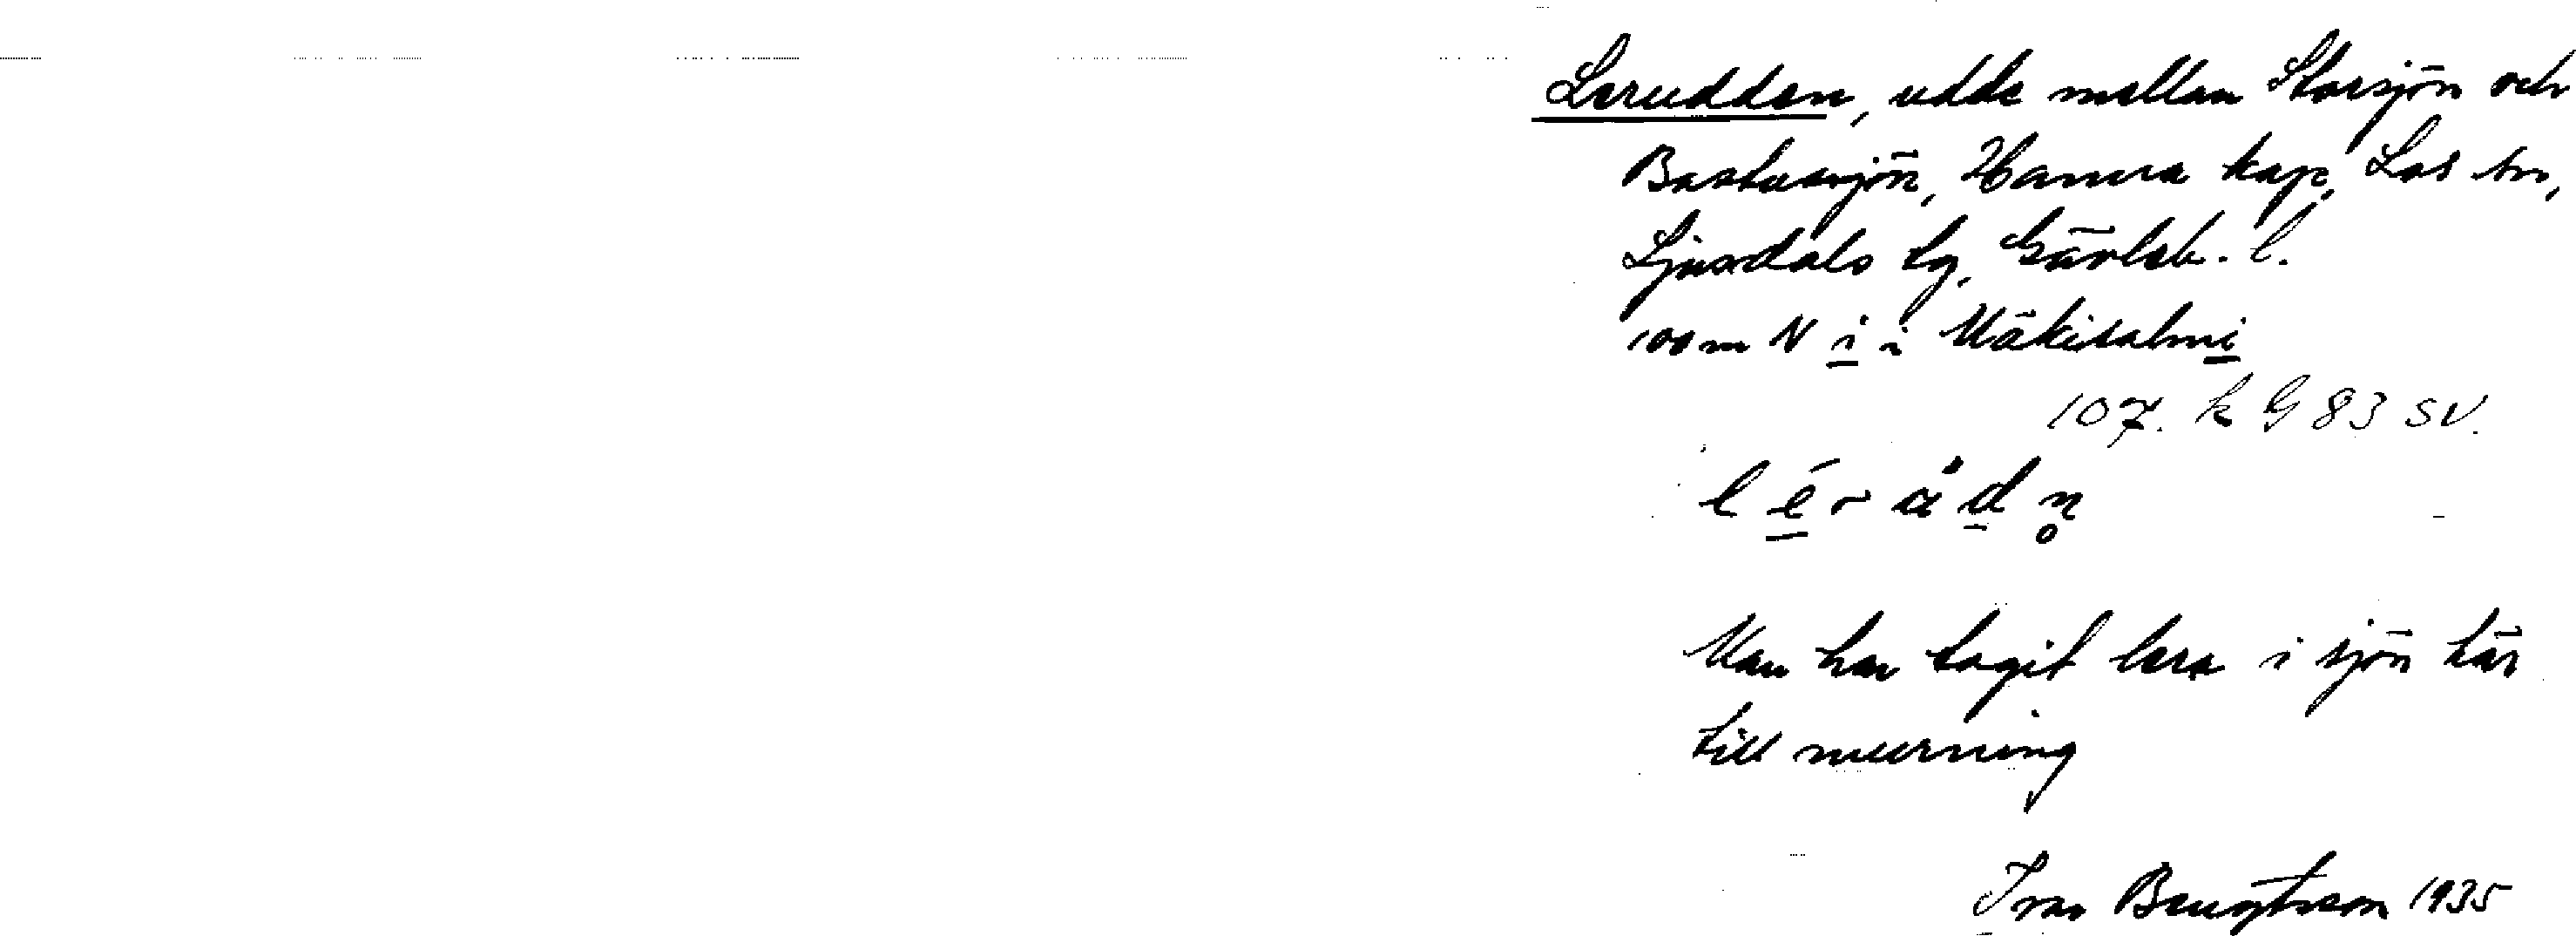 Lerudden, udde mellan Storsjön och
Bastusjön, Hamra kap, Los sn,
Ljusdals tg, Gävleb. l.
100 m N i i Mäkisalmi
107. k G 83 SV.
l é r ä d n̥
Man har tagit lera i sjön här
till murning
Ivar Bengtsson 1935